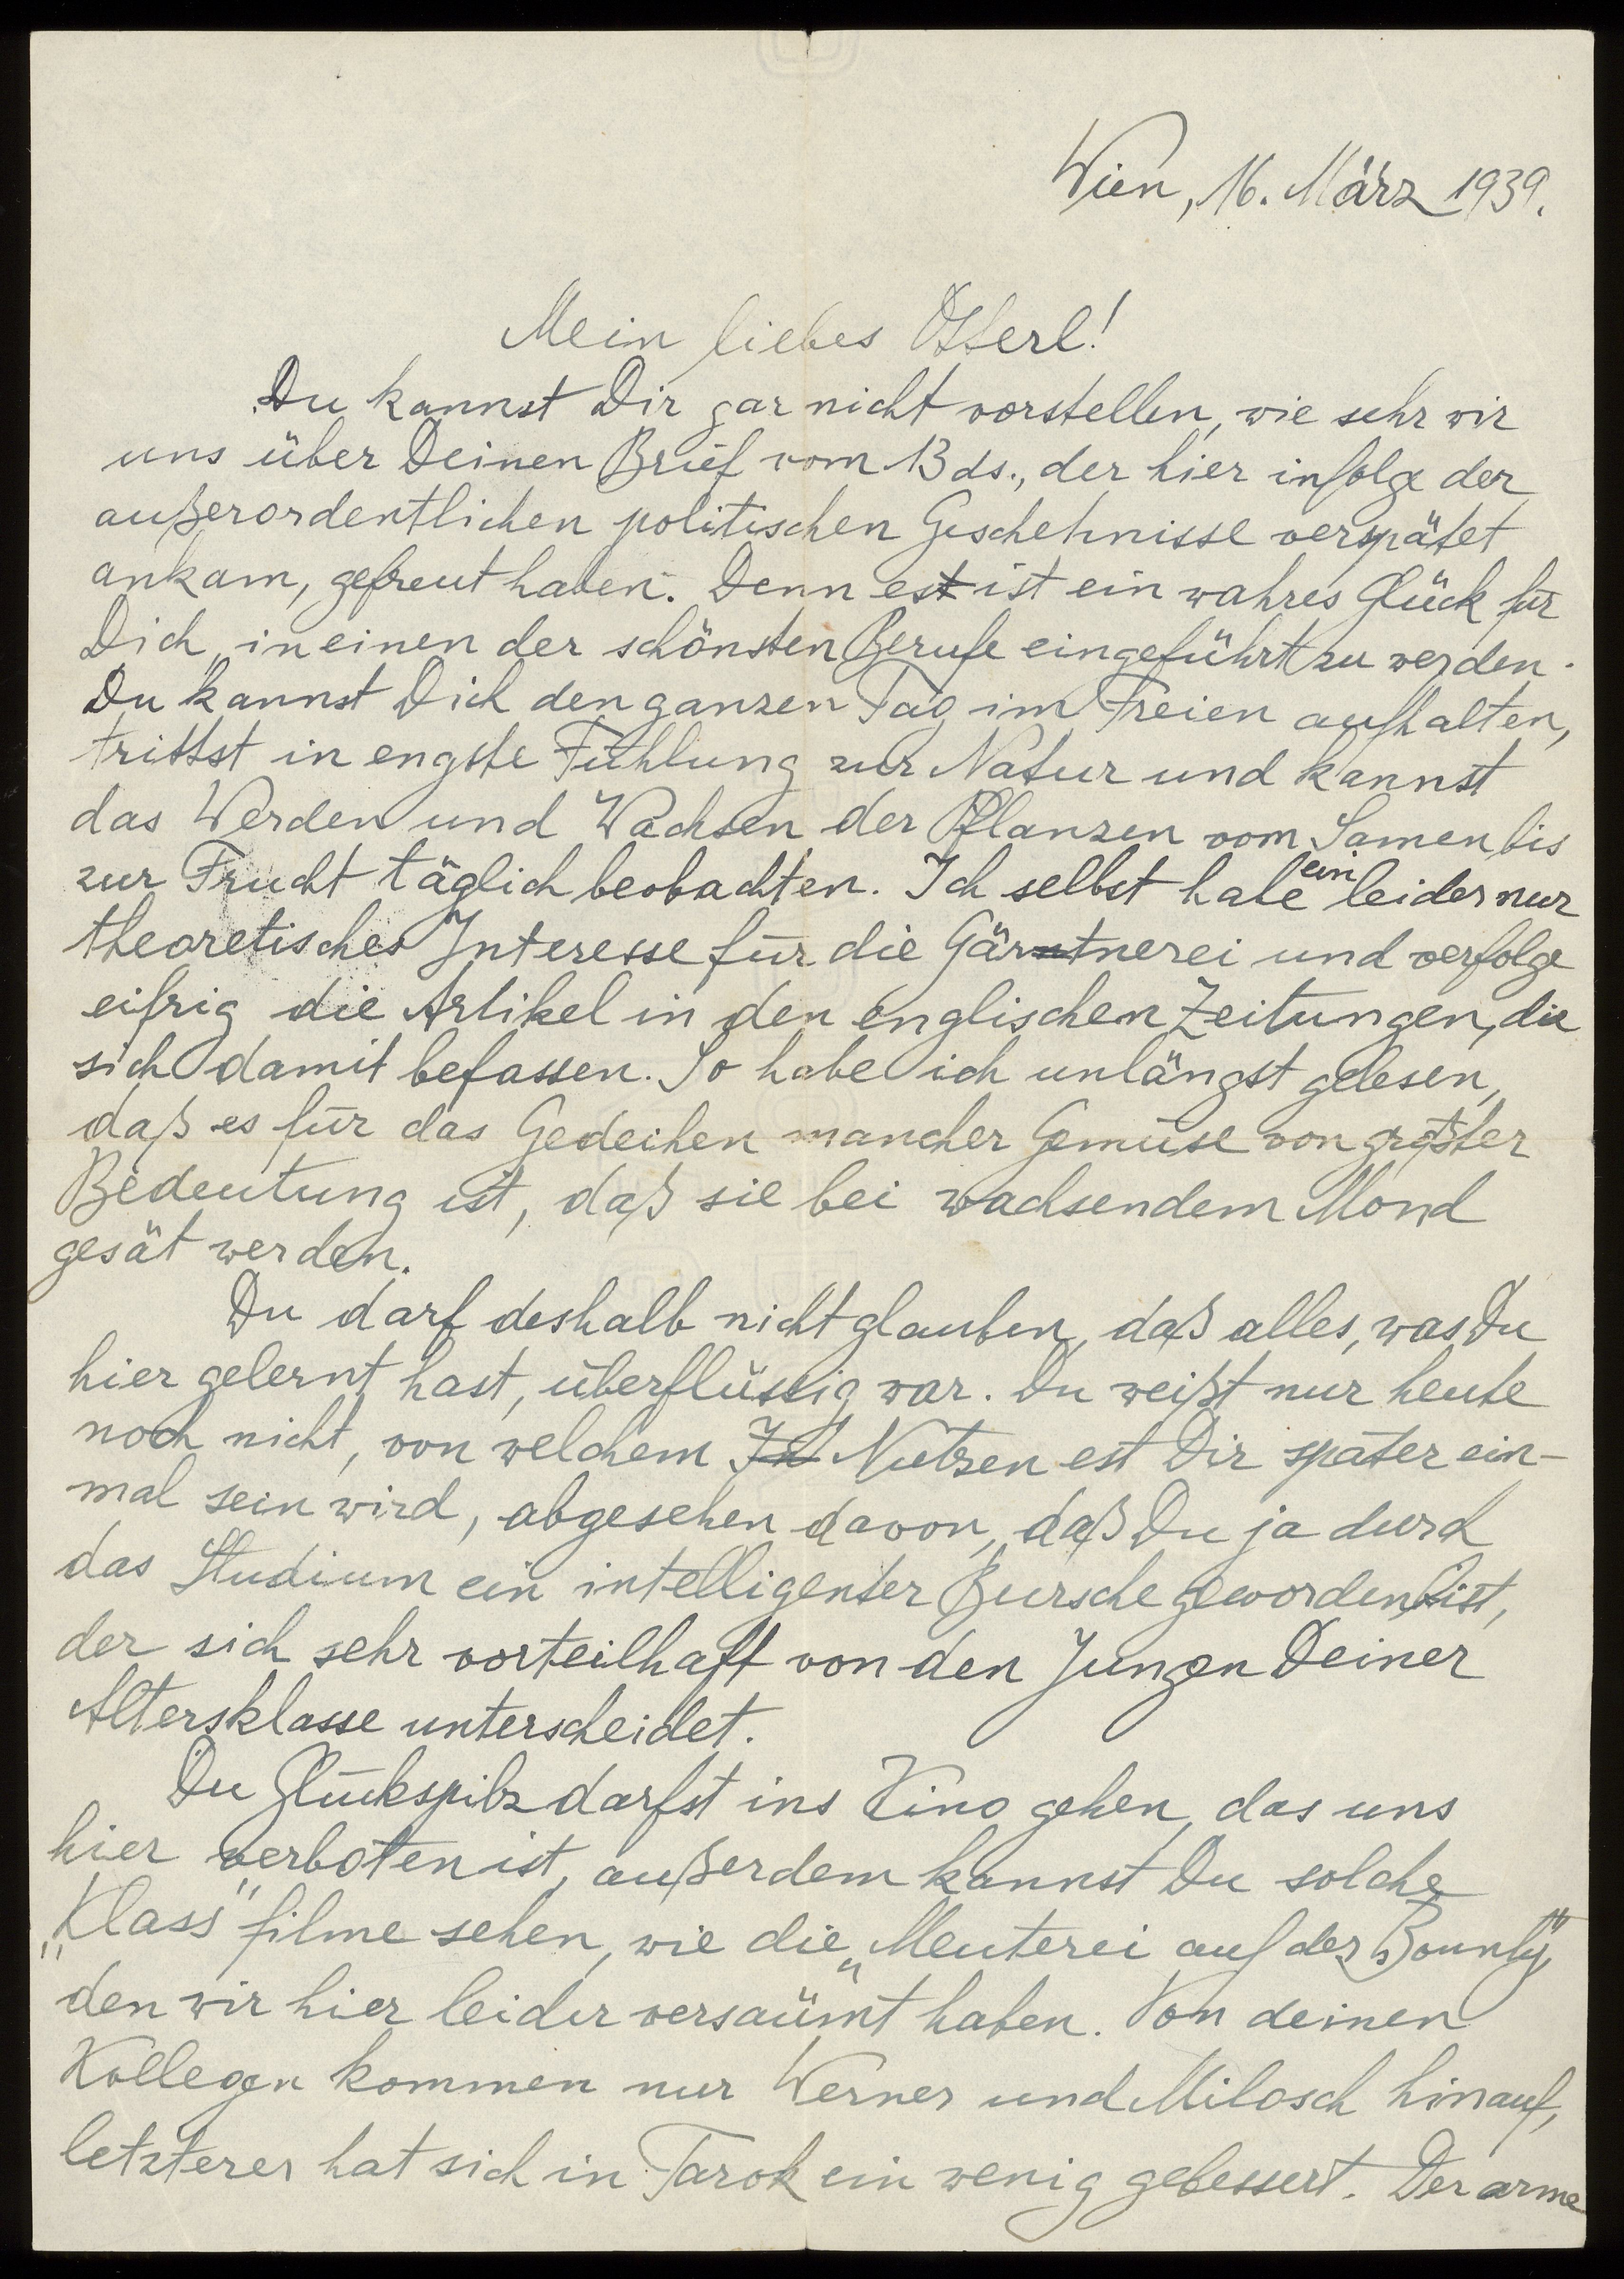 Wien, 16. März 1939.
Mein liebes Otterl!
Du kannst Dir gar nicht vorstellen, wie sehr wir
uns über Deinen Brief vom 13 ds., der hier infolge der
außerordentlichen politischen Geschehnisse verspätet
ankam, gefreut haben. Denn est ist ein wahres Glück für
Dich, in einen der schönsten Berufe eingeführt zu werden.
Du kannst Dich den ganzen Tag im Freien aufhalten,
trittst in engste Fühlung zur Natur und kannst
das Werden und Wachsen der Pflanzen vom Samen bis
zur Frucht täglich beobachten. Ich selbst habe ein leider nur
theoretisches Interesse für die Gärtnerei und verfolge
eifrig die Artikel in den englischen Zeitungen, die
sich damit befassen. So habe ich unlängst gelesen,
daß es für das Gedeihen mancher Gemüse von größter
Bedeutung ist, daß sie bei wachsendem Mond
gesät werden.
Du darf deshalb nicht glauben, daß alles, was Du
hier gelernt hast, überflüssig war. Du weißt nur heute
noch nicht, von welchem Nutzen est Dir später ein-
mal sein wird, abgesehen davon, daß Du ja durch
das Studium ein intelligenter Bursche geworden bist,
der sich sehr vorteilhaft von den Jungen Deiner
Altersklasse unterscheidet.
Du Glückspilz darfst ins Kino gehen, das uns
hier verboten ist, außerdem kannst Du solche
„Klass" filme sehen, wie die „Meuterei auf der Bounty",
den wir hier leider versäumt haben. Von deinen
Kollegen kommen nur Werner und Milosch hinauf,
letzterer hat sich in Tarok ein wenig gebessert. Der arme